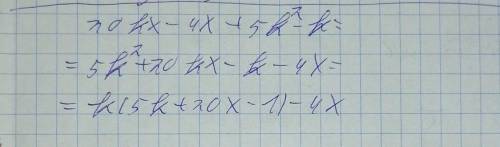 20kx-4x+5k²-k=
=5k²+20kx-k-4x=
=k(5k+20x-1)-4x